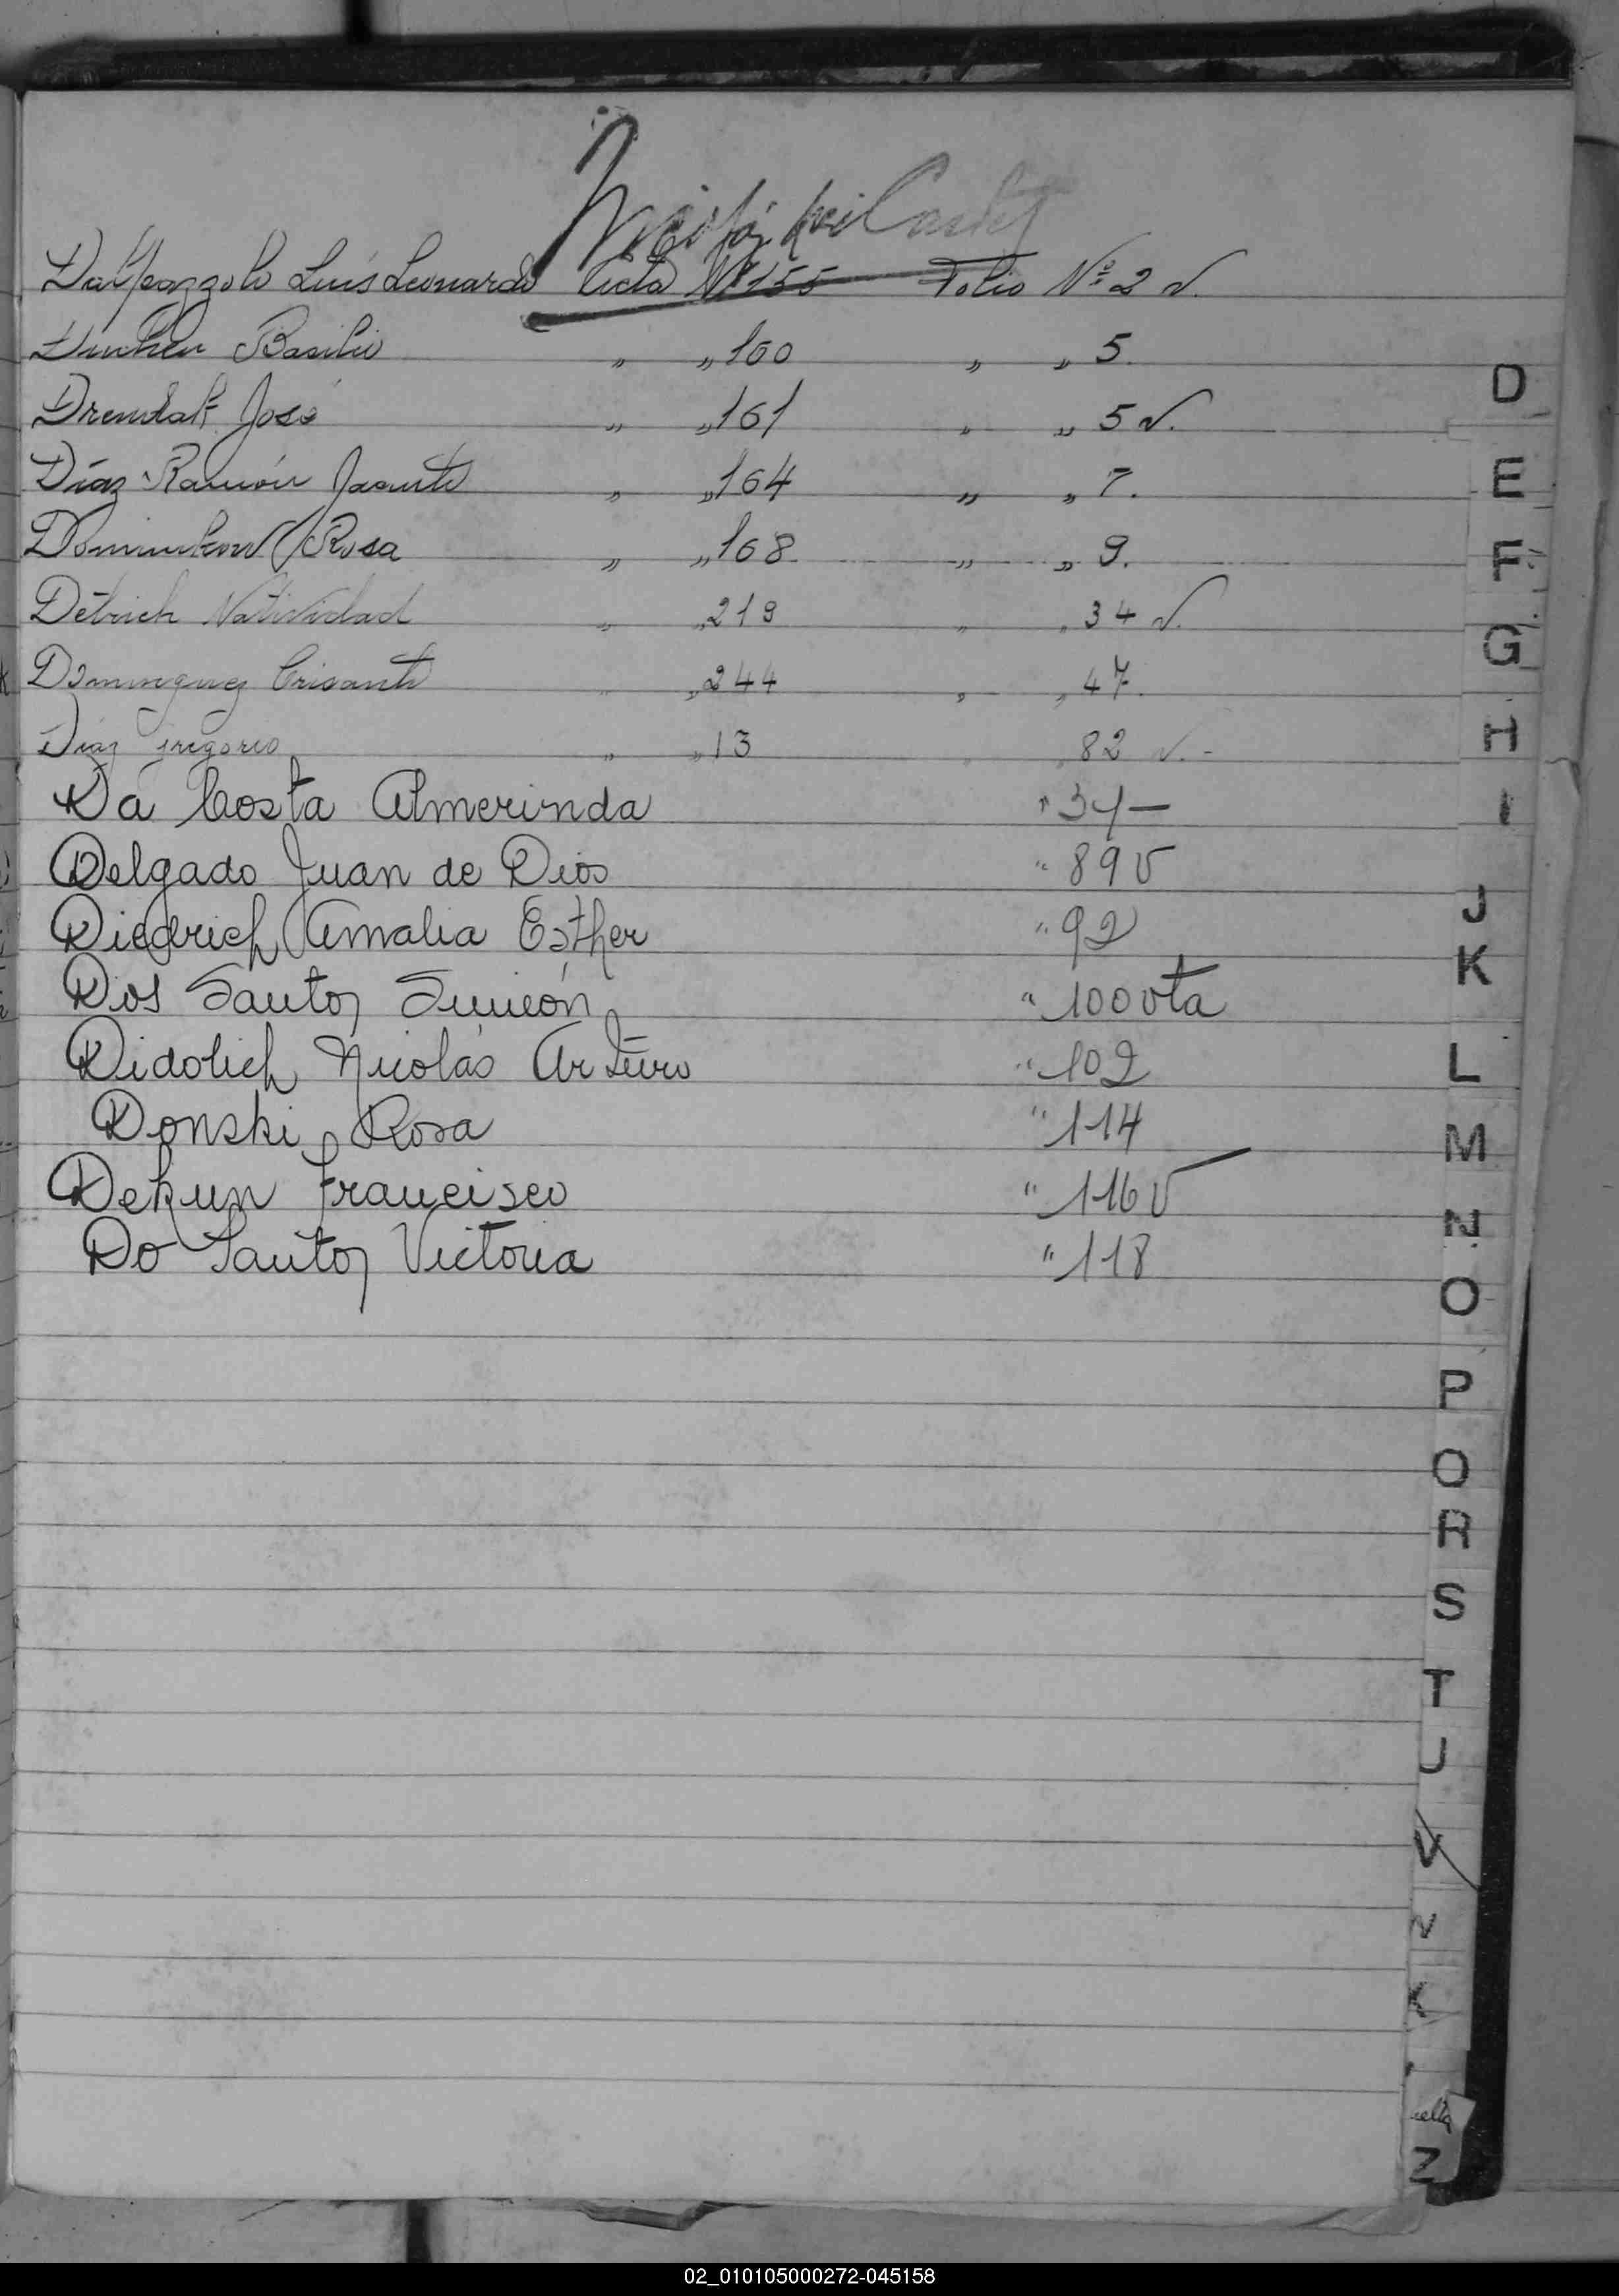 Dalpozzolo Luis Leonardo Acta Nº 155 Folio Nº 2 v.
Basilio " " 160 " " 5.
José " " 161 " " 5 v.
Díaz Ramón Jacinto " " 164 " " 7.
Rosa " " 168 " " 9.
Detrich Natividad " " 219 " " 34 v.
Dominguez Crisanto " " 244 " " 47.
Diaz Gregorio " " 13 " " 82 v. -
Da Costa Almerinda " 34 —
Delgado Juan de Dios " 89 v
Diedrich Amalia Esther " 92
Dos Santos Simeón " 100 vta
Didolich Nicolás Arturo " 102
Donski Rosa " 114
Dekun Francisco " 116 v
Do Santos Victoria " 118
D
E
F
G
H
I
J
K
L
M
N
O
P
R
S
T
U
V
Z
02_010105000272-045158